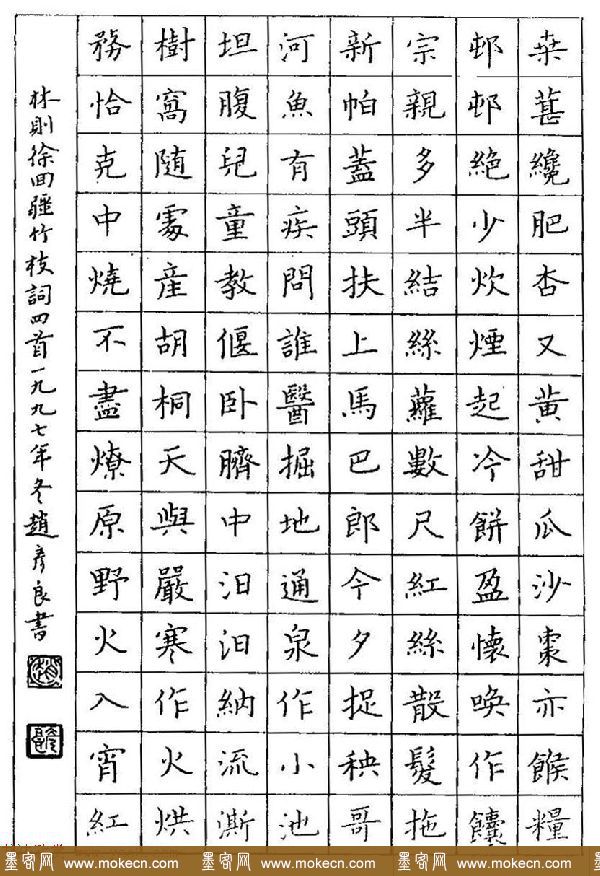 桒葚纔肥杏又黄甜瓜沙棗亦餱糧
邨邨絶少炊煙起冷餅盈懷唤作饢
宗親多半結絲蘿數尺紅絲散髮拖
新帕蓋頭扶上馬巴郎今夕捉秧哥
河魚有疾問誰醫掘地通泉作小池
坦腹兒童教偃卧臍中汩汩納流澌
樹窩隨處産胡桐天與嚴寒作火烘
務恰克中燒不盡燎原野火入宵紅
林則徐回疆竹枝詞四首一九九七年冬趙彥良書
墨客网 www.mokecn.com 墨客网 www.mokecn.com 墨客网 www.mokecn.com